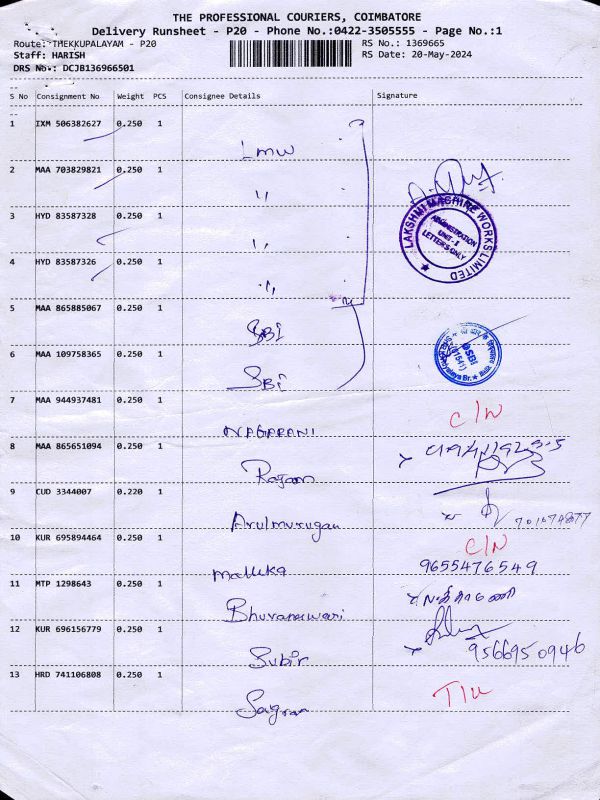 THE PROFESSIONAL COURIERS, COIMBATORE
Delivery Runsheet - P20 - Phone No.:0422-3505555 - Page No.:1
Route: THEKKUPALAYAM - P20
RS No.: 1369665
Staff: HARISH
RS Date: 20-May-2024
DRS No.: DCJB136966501
S No Consignment No Weight PCS Consignee Details Signature
1 IXM 506382627 0.250 1
LMW
2 MAA 703829821 0.250 1
"
3 HYD 83587328 0.250 1
"
LAKSHMI MACHINE WORKS LIMITED
ADMINISTRATION
UNIT-I
LETTERS ONLY
4 HYD 83587326 0.250 1
"
5 MAA 865885067 0.250 1
SBI
6 MAA 109758365 0.250 1
SBI
SBI
7 MAA 944937481 0.250 1
C/N
NAGARANI
8 MAA 865651094 0.250 1
Rajaam
9 CUD 3344007 0.220 1
Arulmurugan
10 KUR 695894464 0.250 1
C/N
Mallika
9655476549
11 MTP 1298643 0.250 1
Bhuvaneswari
12 KUR 696156779 0.250 1
Subir
9566950946
13 HRD 741106808 0.250 1
Sagran